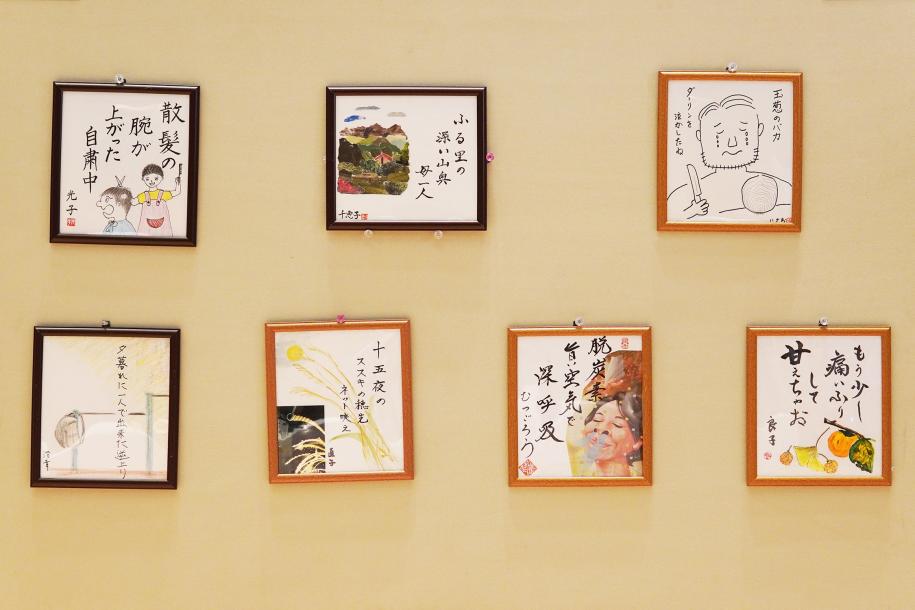 散髪の
腕が
上がった
自粛中
光子
ふる里の
深い山奥
母一人
十志子
玉葱のバカ
ダーリンを
泣かしたね
夕暮れに一人で出来た逆上り
十五夜の
ススキの穂先
ネット映え
直子
脱炭素
旨い空気で
深呼吸
むつごろう
もう少し
痛いふり
して
甘えちゃお
良子